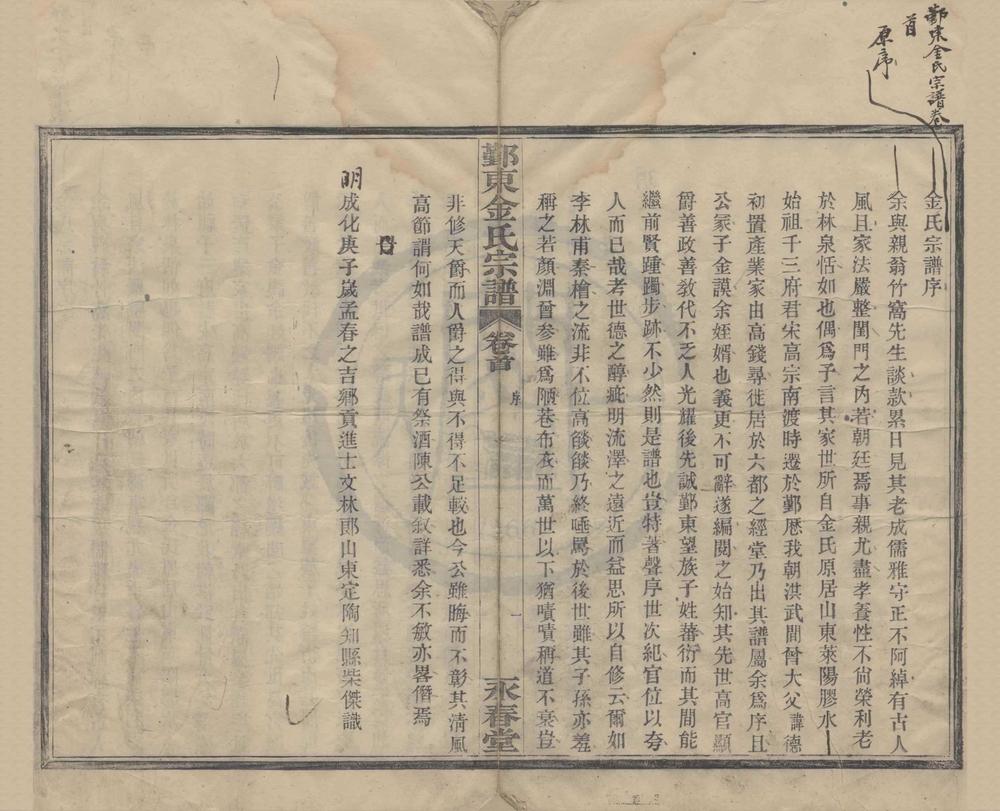 鄞東金氏宗譜卷
首
原序
金氏宗譜序
余與親翁竹窩先生談款累日見其老成儒雅守正不阿綽有古人
風且家法嚴整閨門之內若朝廷焉事親尤盡孝養性不尙榮利老
於林泉恬如也偶爲予言其家世所自金氏原居山東萊陽膠水
始祖千三府君宋高宗南渡時遷於鄞歴我朝洪武間曾大父諱德
初置產業家由高錢尋徙居於六都之經堂乃出其譜屬余爲序且
公冢子金謨余姪婿也義更不可辭遂編閱之始知其先世高官顯
爵善政善敎代不乏人光耀後先誠鄞東望族子姓蕃衍而其間能
繼前賢踵躅步跡不少然則是譜也豈特著聲序世次紀官位以夸
人而已哉考世德之醇疵明流澤之遠近而益思所以自修云爾如
李林甫秦檜之流非不位高燄燄乃終唾罵於後世雖其子孫亦羞
稱之若顏淵曾參雖爲陋巷布衣而萬世以下猶嘖嘖稱道不衰豈
鄞東金氏宗譜
卷首
序
一
永春堂
非修天爵而人爵之得與不得不足較也今公雖晦而不彰其清風
高節謂何如哉譜成已有祭酒陳公載敘詳悉余不敏亦畧僭焉
明成化庚子嵗孟春之吉鄉貢進士文林郎山東定陶知縣柴傑識